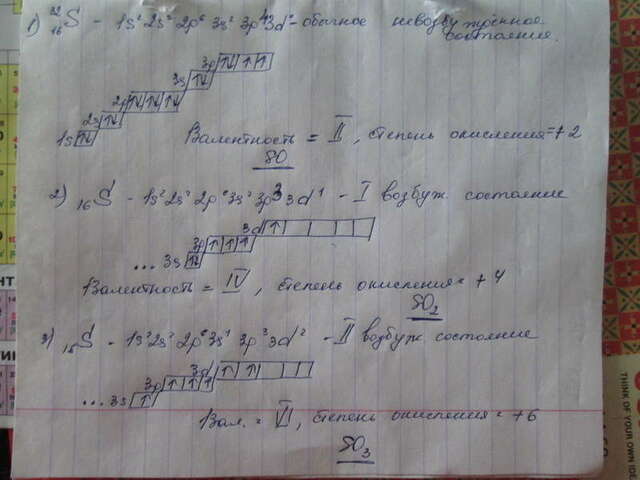 1) ³²₁₆S - 1s² 2s² 2p⁶ 3s² 3p⁴ 3d⁰ - обычное невозбуждённое
состояния.
3p ↑↓ ↑ ↑
3s ↑↓
2p ↑↓ ↑↓ ↑↓
2s ↑↓
1s ↑↓
Валентность = II, степень окисления = +2
SO
2) ₁₆S - 1s² 2s² 2p⁶ 3s² 3p³ 3d¹ - I возбуж. состояние
3d ↑
3p ↑ ↑ ↑
... 3s ↑↓
Валентность = IV, степень окисления = +4
SO₂
3) ₁₆S - 1s² 2s² 2p⁶ 3s¹ 3p³ 3d² - II возбуж. состояние
3d ↑ ↑
3p ↑ ↑ ↑
... 3s ↑
Вал. = VI, степень окисления = +6
SO₃
THINK OF YOUR OWN